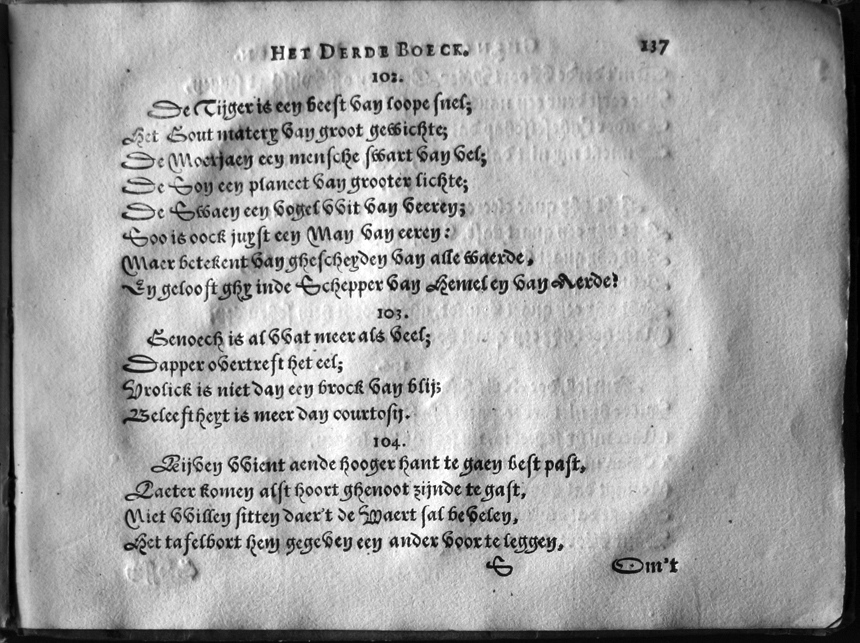 HET DERDE BOECK. 137
102.
De Tijger is een beest van loope snel;
Het Gout matery van groot gewichte;
De Moerjaen een mensche swart van vel;
De Son een planeet van grooter lichte;
De Swaen een vogel wit van veeren;
Soo is oock juyst een Man van eeren:
Maer betekent van ghescheyden van alle waerde,
En gelooft ghy inde Schepper van Hemel en van Aerde?
103.
Genoech is al wat meer als veel;
Dapper overtreft het eel;
Vrolick is niet dan een brock van blij;
Beleeftheyt is meer dan courtosij.
104.
Rijven wient aende hooger hant te gaen best past,
Laeter komen alst hoort ghenoot zijnde te gast,
Niet willen sitten daer't de Waert sal bevelen,
Het tafelbort hem gegeven een ander voor te leggen,
S Om't